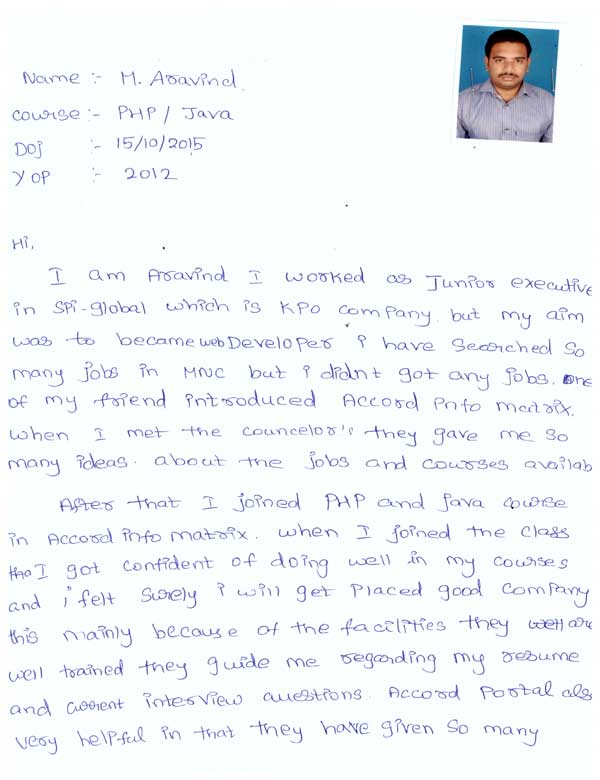 Name :- M. Aravind.
Course :- PHP / Java
DOJ :- 15/10/2015
YOP :- 2012
Hi,
I am Aravind I worked as Junior executive
in SPi-global which is KPO company. but my aim
was to became web Developer i have searched so
many jobs in MNC but i didnt got any jobs. One
of my friend introduced Accord Info matrix.
when I met the councelor's they gave me so
many ideas. about the jobs and courses availab
After that I joined PHP and Java course
in Accord info matrix. when I joined the class
I got confident of doing well in my courses
and i felt surely i will get placed good company
this mainly because of the facilities they are
well trained they guide me regarding my resume
and current interview questions. Accord Portal als
very helpful in that they have given so many